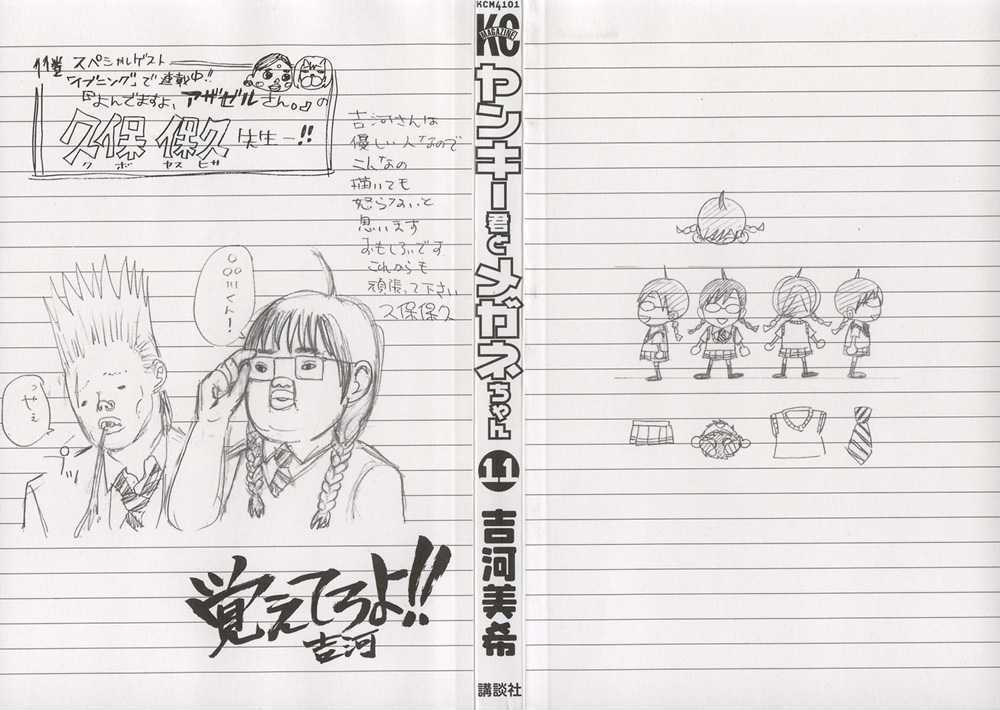 スペシャルゲスト
「イブニング」で連載中!!
『よんでますよ、アザゼルさん。』の
久保 保久 先生ー!!
クボ ヤスヒサ
吉河さんは
優しい人なので
こんなの
描いても
怒らないと
思います
おもしろいです
これからも
頑張って下さい
久保保久
○○川くん!
っゃぇ
プッ
覚えてろよ!!
吉河
KCM4101
KC
MAGAZINE
ヤンキー君とメガネちゃん
11
吉河美希
講談社